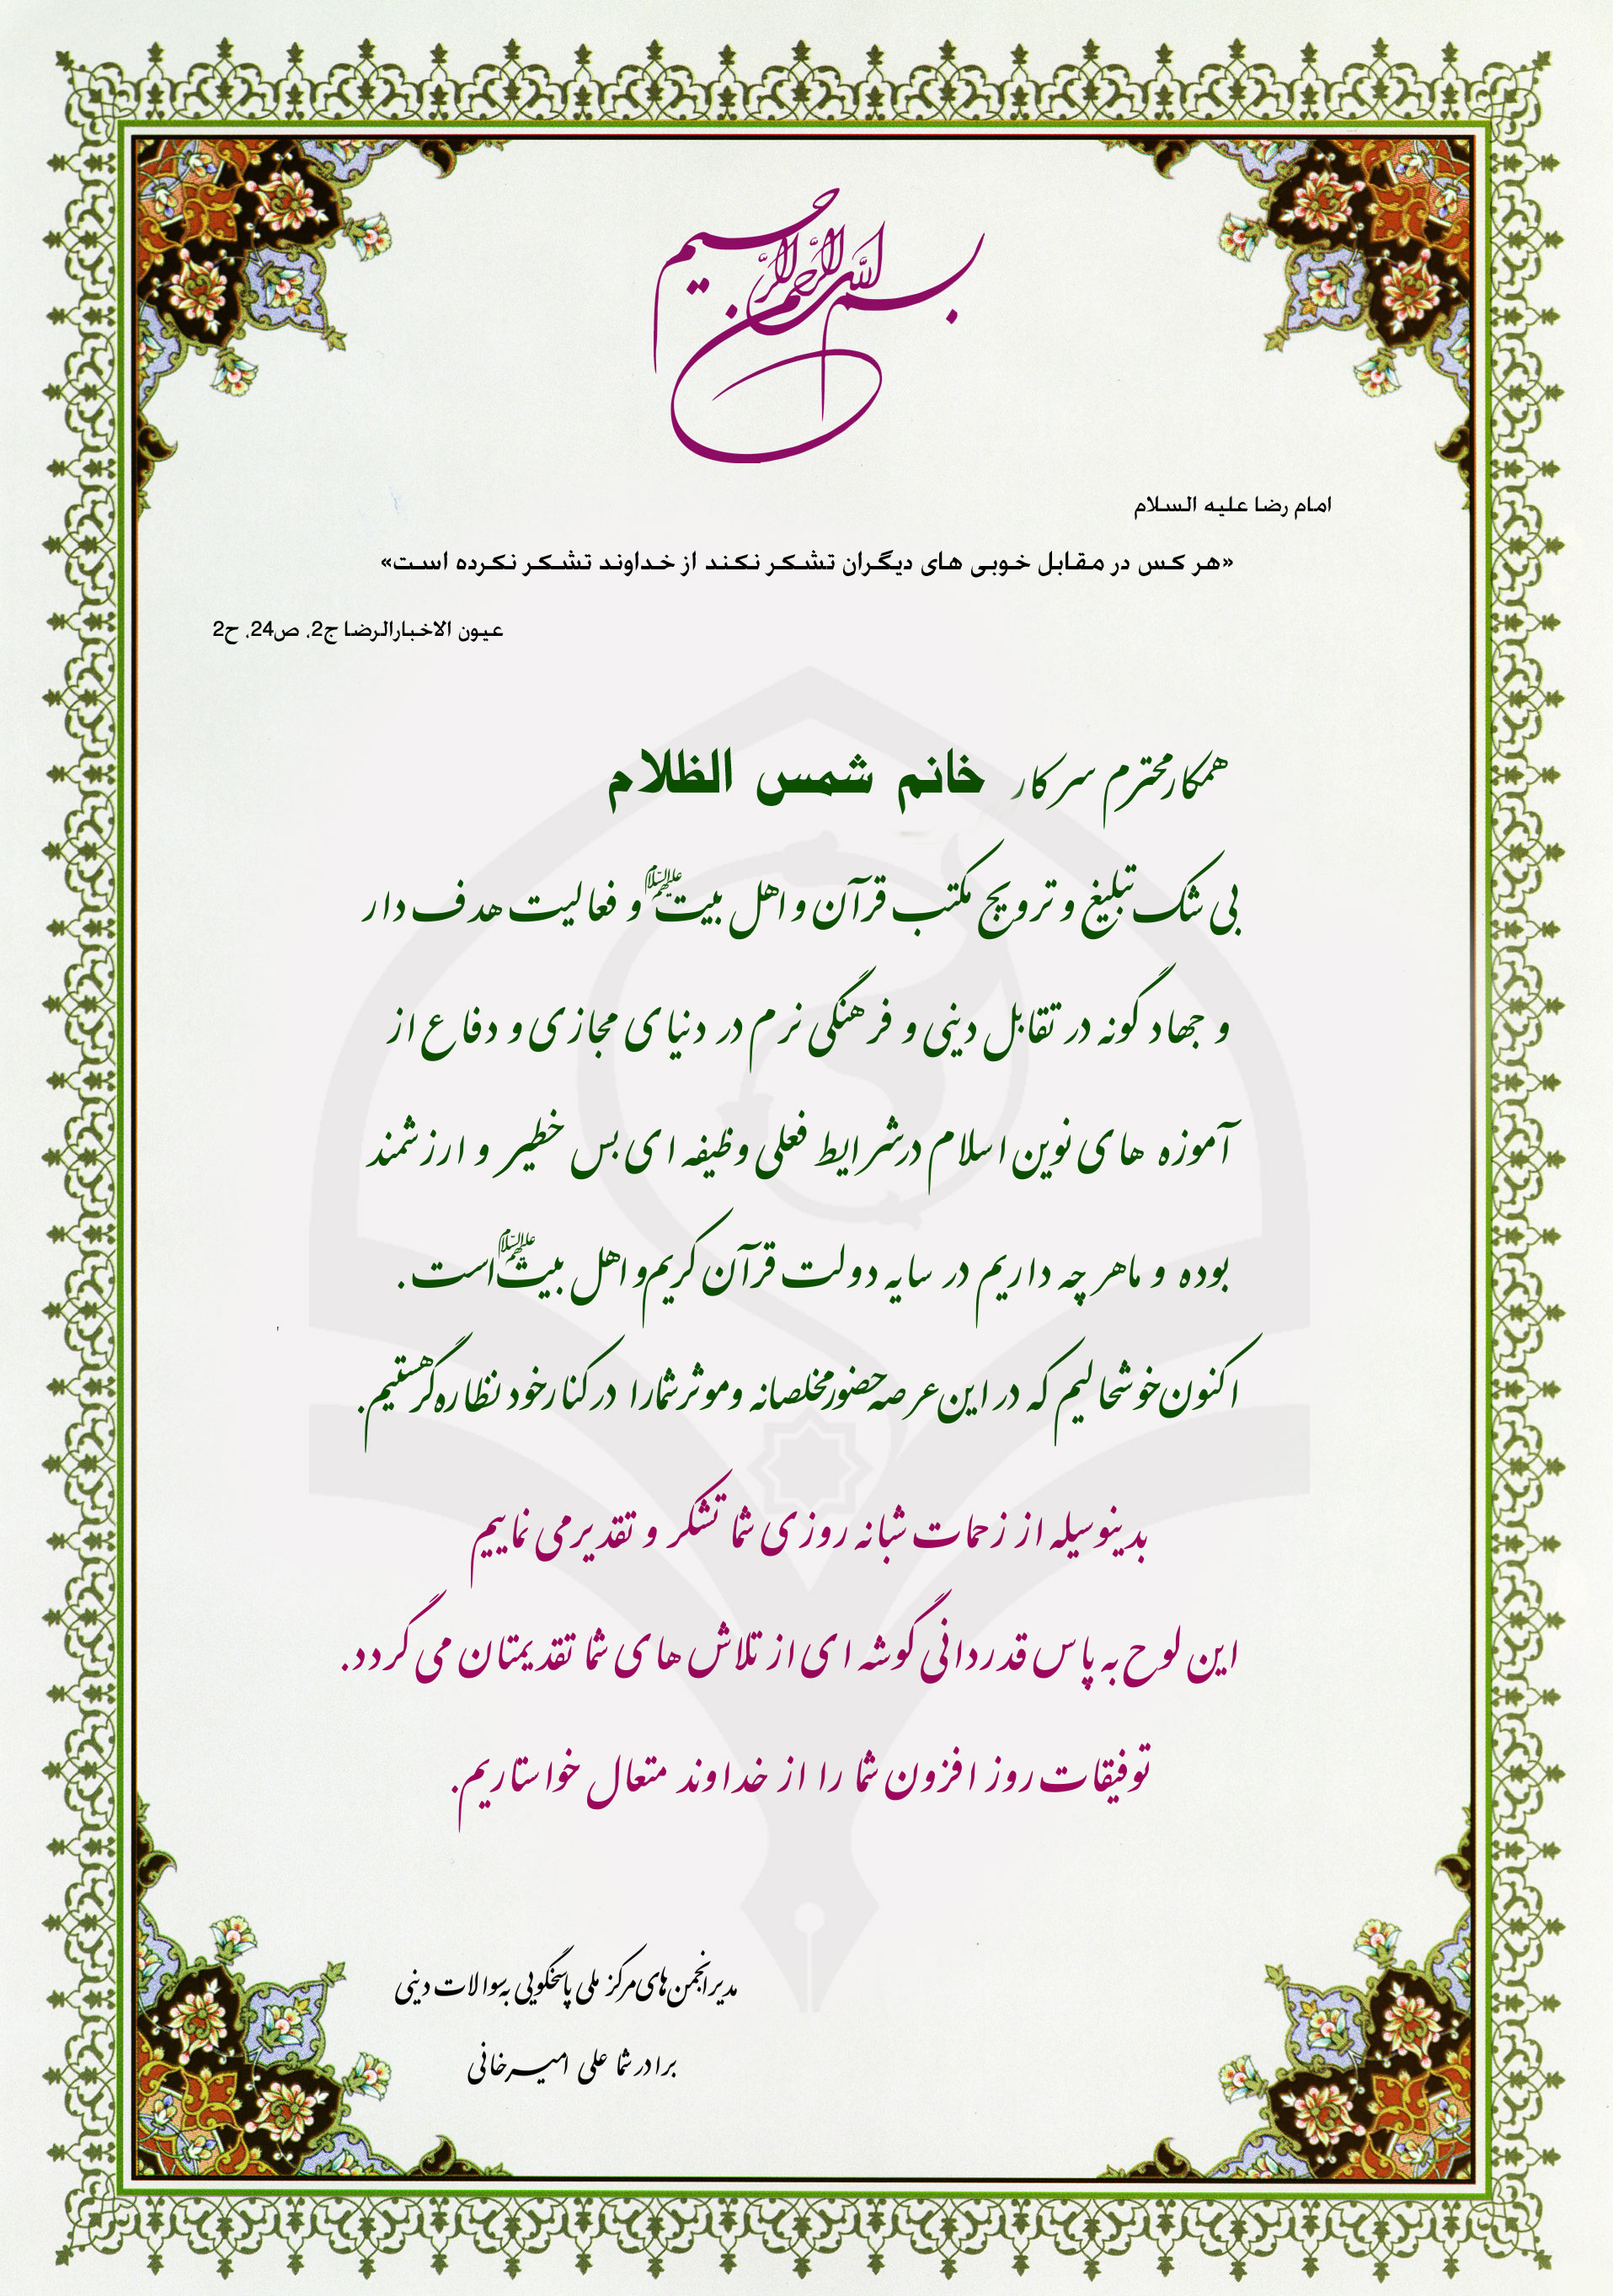 بسم الله الرحمن الرحیم
امام رضا علیه السلام
«هر کس در مقابل خوبی های دیگران تشکر نکند از خداوند تشکر نکرده است»
عیون الاخبارالرضا ج2، ص24، ح2
همکارمحترم سرکار خانم شمس الظلام
بی شک تبلیغ و ترویج مکتب قرآن و اهل بیت علیهم السلام و فعالیت هدف دار
و جهاد گونه در تقابل دینی و فرهنگی نرم در دنیای مجازی و دفاع از
آموزه های نوین اسلام درشرایط فعلی وظیفه ای بس خطیر و ارزشمند
بوده و ماهر چه داریم در سایه دولت قرآن کریم و اهل بیت علیهم السلام است.
اکنون خوشحالیم که در این عرصه حضورمخلصانه وموثرشمارا درکنارخود نظاره گرهستیم.
بدینوسیله از زحمات شبانه روزی شما تشکر و تقدیرمی نماییم
این لوح به پاس قدردانی گوشه ای از تلاش های شما تقدیمتان می گردد.
توفیقات روز افزون شما را از خداوند متعال خواستاریم.
مدیرانجمن های مرکز ملی پاسخگویی به سوالات دینی
برادر شما علی امیرخانی